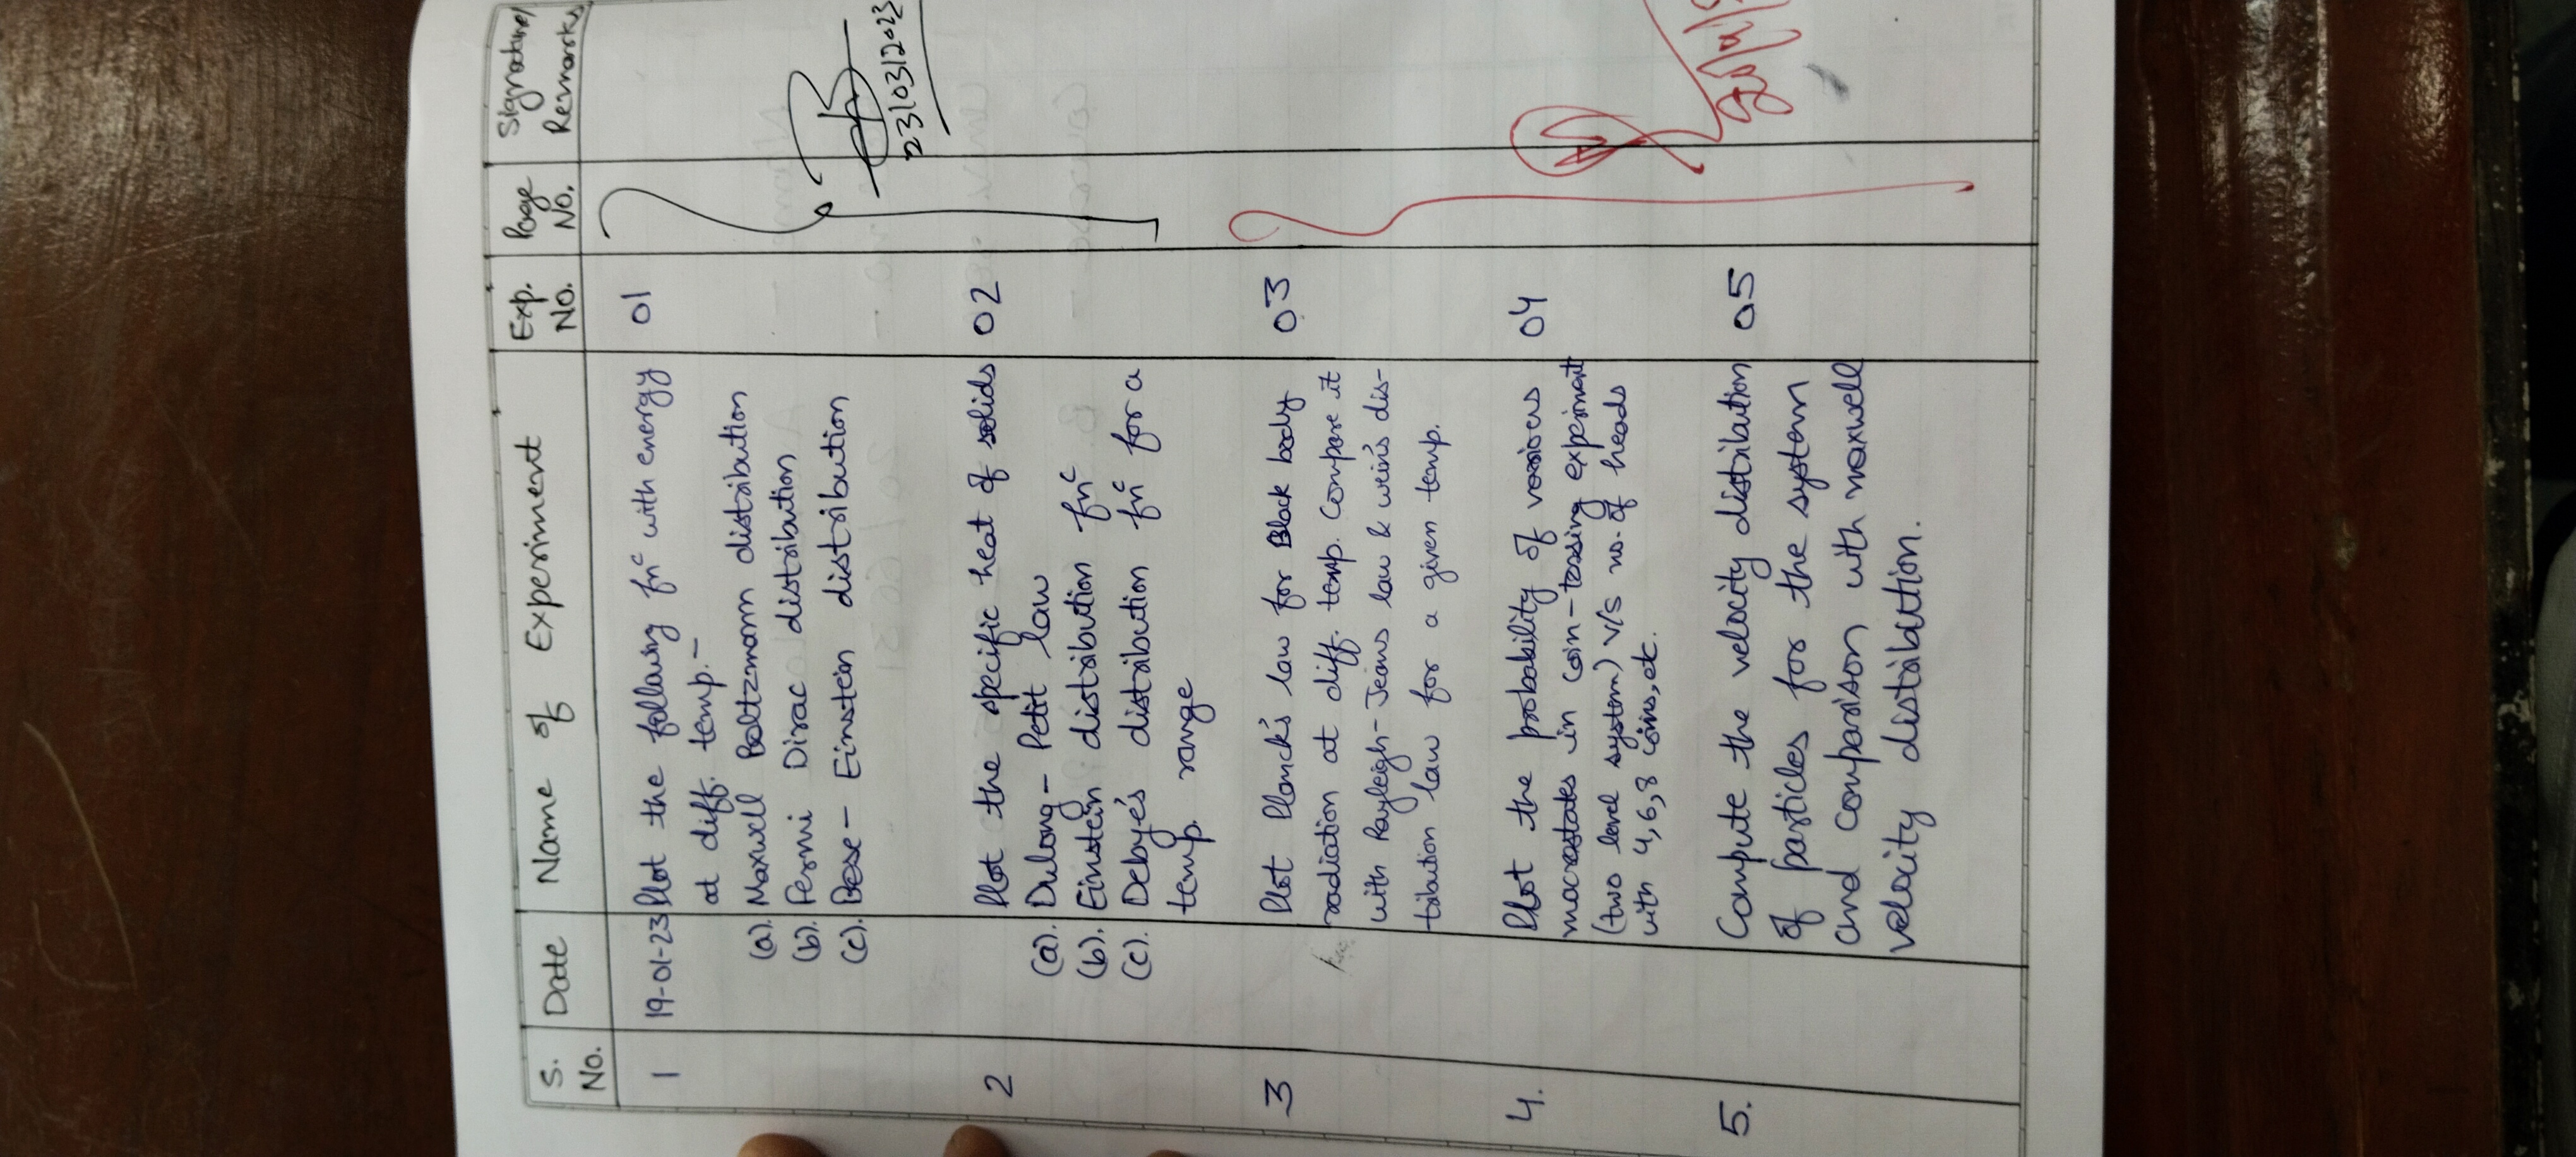 S. No. Date Name of Experiment Exp. No. Page No. Signature/ Remarks
1 19-01-23 Plot the following fnᶜ with energy 01
at diff. temp.-
(a). Maxwell Boltzmann distribution
(b). Fermi Dirac distribution
(c). Bose- Einstein distribution
23/03/2023
2 Plot the specific heat of solids 02
(a). Dulong- Petit law
(b). Einstein distribution fnᶜ
(c). Debye's distribution fnᶜ for a
temp. range
3 Plot Planck's law for Black body 03
radiation at diff. temp. Compare it
with Rayleigh-Jeans law & wein's dis-
tribution law for a given temp.
4. Plot the probability of various 04
macrostates in coin-tossing experiment
(two level system) v/s no. of heads
with 4,6,8 coins, etc.
5. Compute the velocity distribution 05
of particles for the system
and comparison with maxwell
velocity distribution.